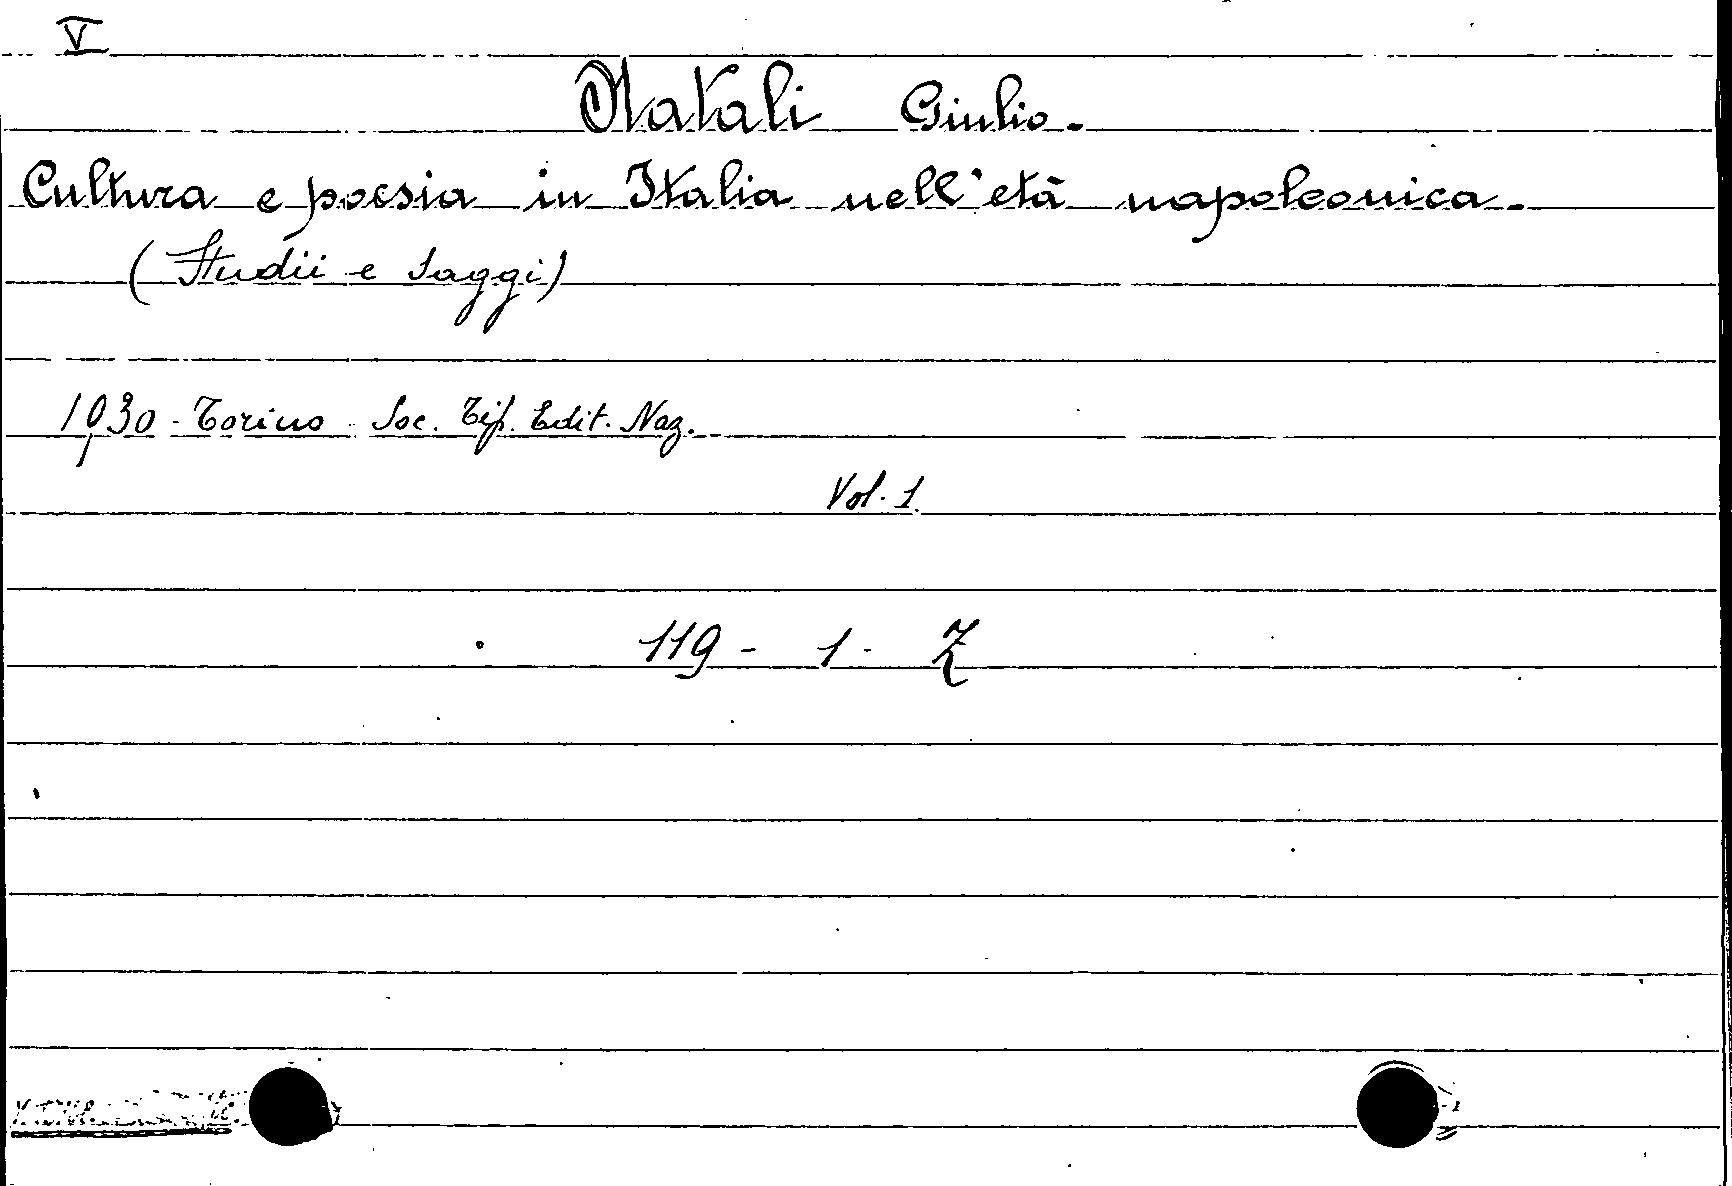 V
Natali Giulio.
Cultura e poesia in Italia nell'età napoleonica.
(Studii e saggi)
1930 - Torino - Soc. Tip. Edit. Naz.
Vol. 1.
119 - 1 - Z